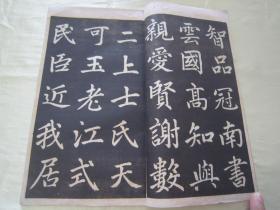 智品冠南書
雲國高知與
親愛賢謝數
二上士氏天
可玉老江式
民臣近我居